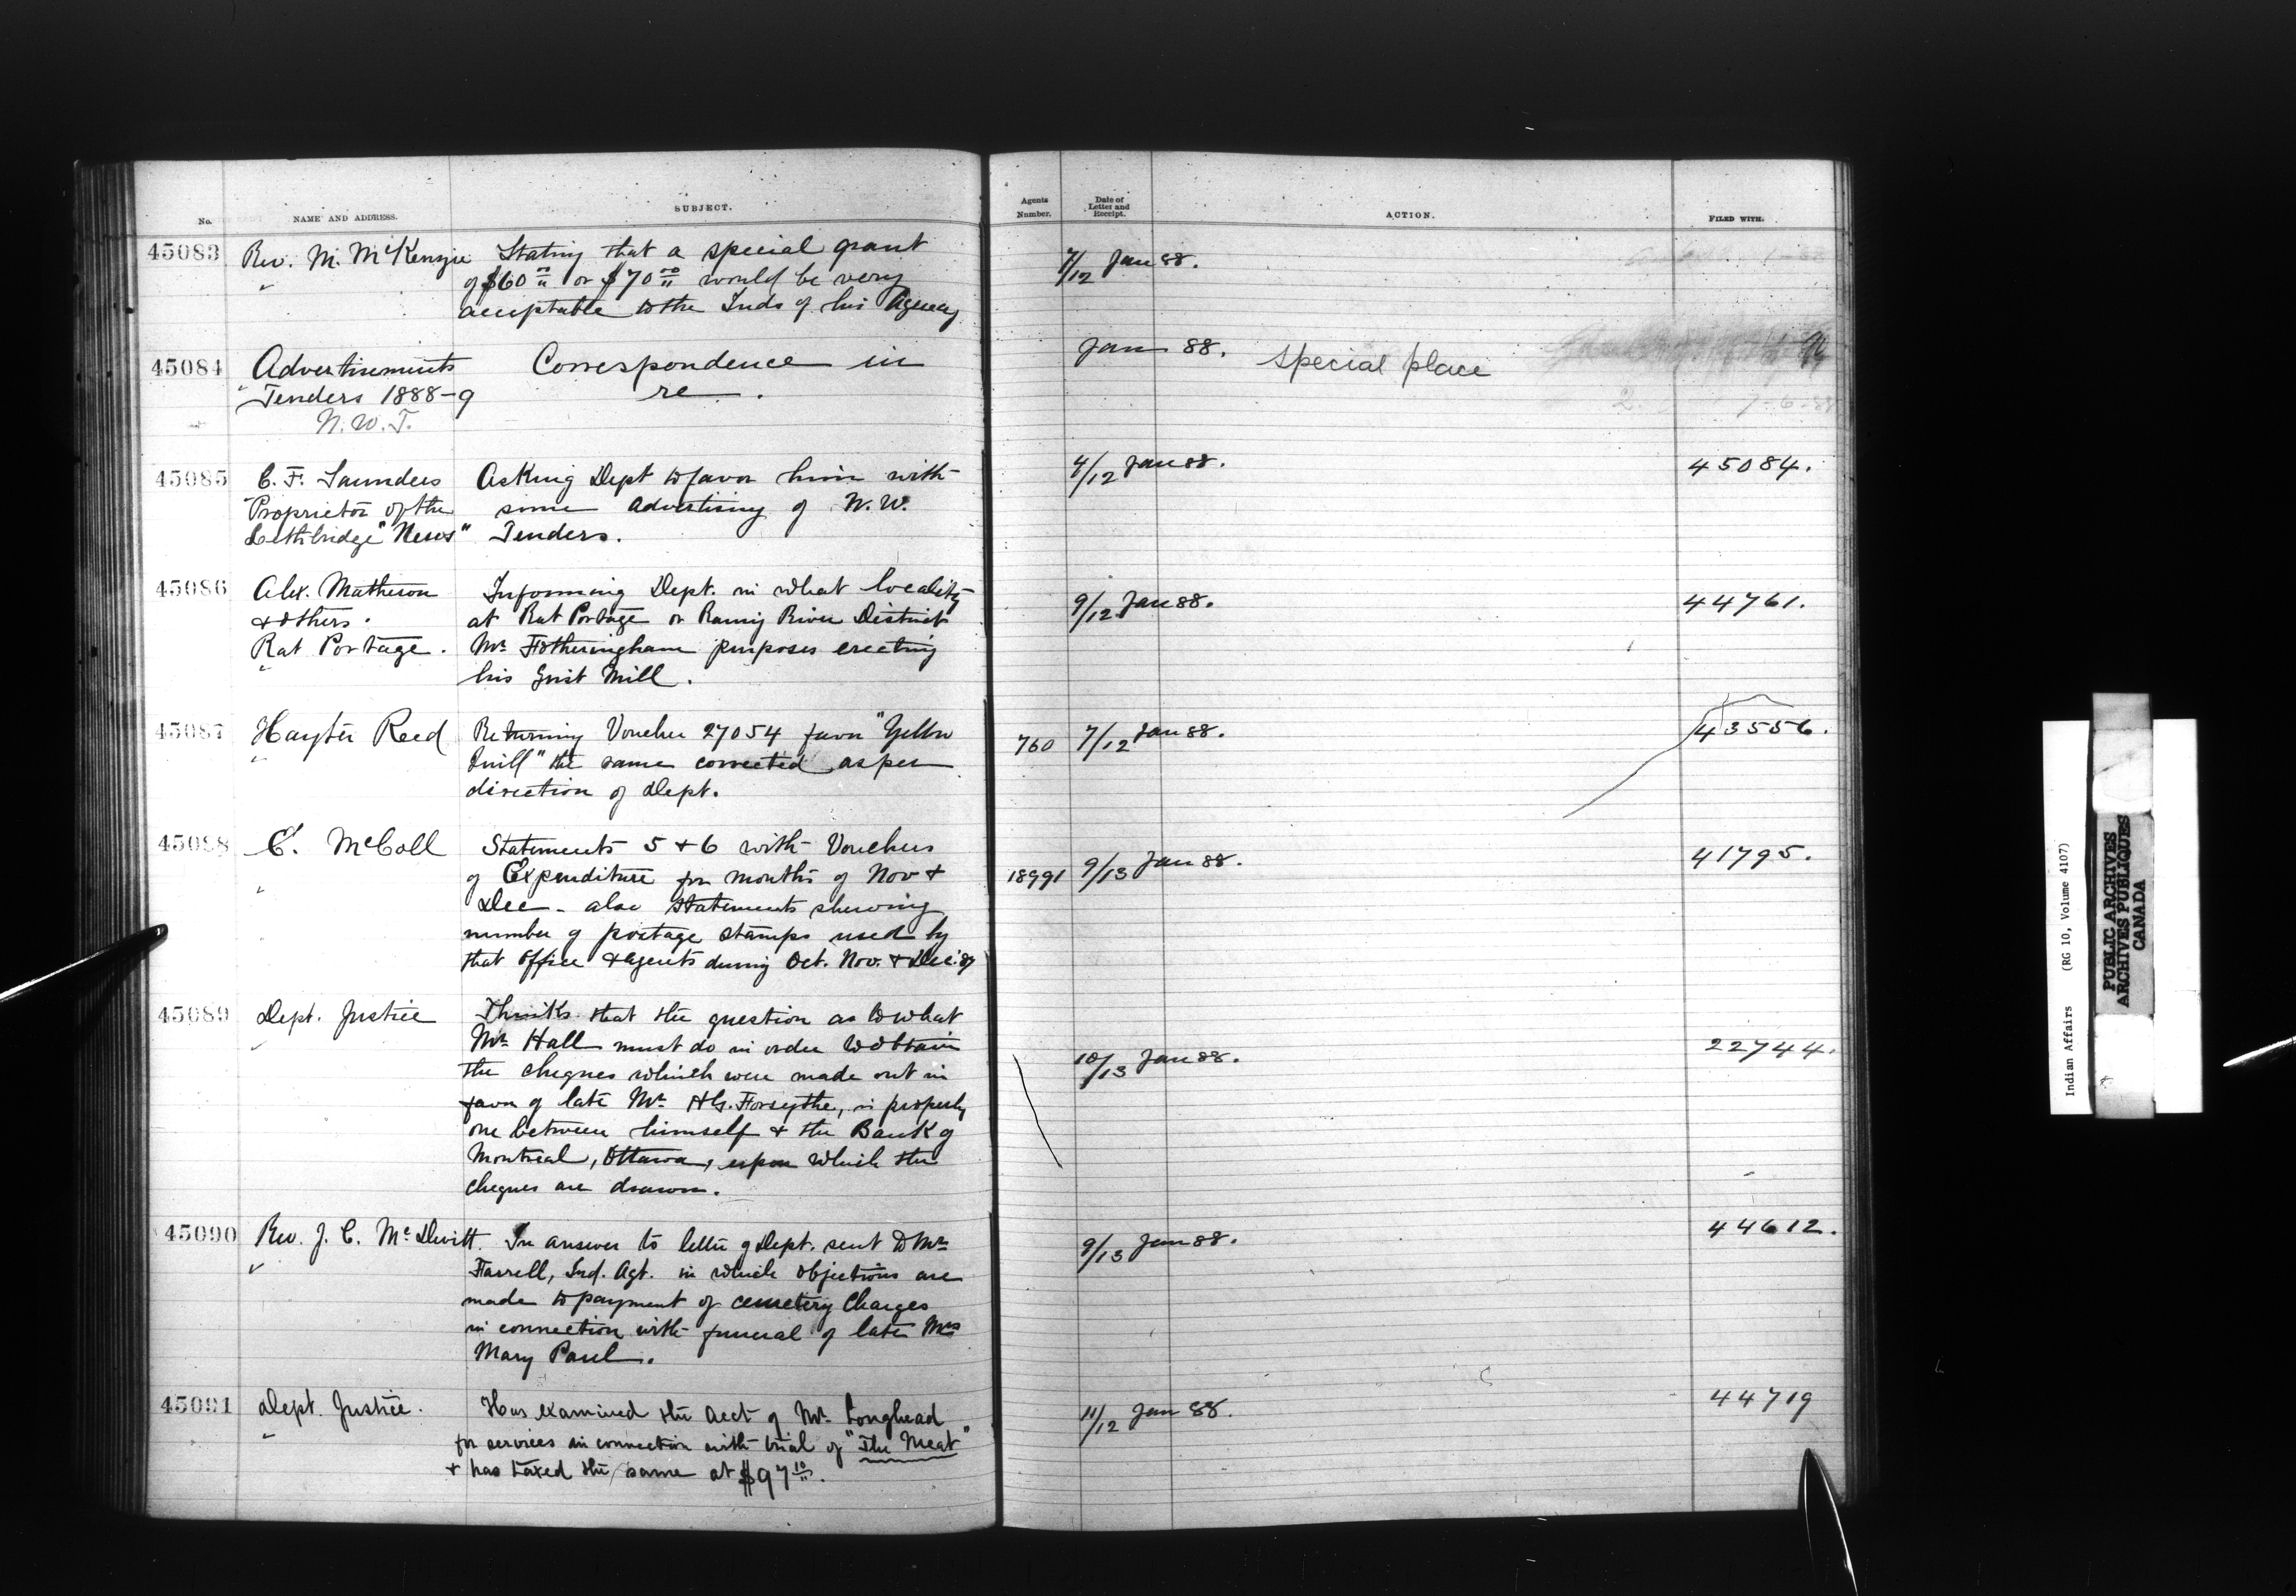 No. NAME AND ADDRESS. SUBJECT. Agents Number. Date of Letter and Receipt. ACTION. FILED WITH.
45083 Rev. M. McKenzie Stating that a special grant 7/12 Jan 88.
of $60 00 or $70 00 would be very
acceptable to the Inds of his Agency
45084 Advertisements Correspondence in Jan 88. special place
Tenders 1888-9 re.
N.W.T.
7-6-88
45085 C. F. Saunders Asking Dept to favor him with 4/12 Jan 88. 45084.
Proprietor of the some advertising of N.W.
Lethbridge "News" Tenders.
45086 Alex. Matheson Informing Dept. in what locality 9/12 Jan 88. 44761.
& others. at Rat Portage or Rainy River District
Rat Portage. Mr Fotheringham purposes erecting
his Grist Mill.
45087 Hayter Reed Returning Voucher 27054 favor "Yellow 760 7/12 Jan 88. 43556.
Quill" the same corrected as per
direction of Dept.
45088 E. McColl Statements 5 & 6 with Vouchers 18991 9/13 Jan 88. 41795.
of Expenditure for months of Nov &
Dec - also statements shewing
number of postage stamps used by
that Office & Agents during Oct. Nov. & Dec. 87
45089 Dept. Justice Thinks that the question as to what 10/13 Jan 88. 22744.
Mr Hall must do in order to obtain
the cheques which were made out in
favor of late Mr H.G. Forsythe, is properly
one between himself & the Bank of
Montreal, Ottawa, upon which the
cheques are drawn.
45090 Rev. J. C. McDevitt. In answer to letter of Dept. sent to Mr 9/13 Jan 88. 44612.
Farrell, Ind. Agt. in which objections are
made to payment of cemetery charges
in connection with funeral of late Mrs
Mary Paul.
45091 Dept. Justice. Has examined the acct of Mr Longhead 11/12 Jan 88. 44719
for services in connection with trial of "The Meat"
& has taxed the same at $97 10.
Indian Affairs (RG 10, Volume 4107)
PUBLIC ARCHIVES
ARCHIVES PUBLIQUES
CANADA